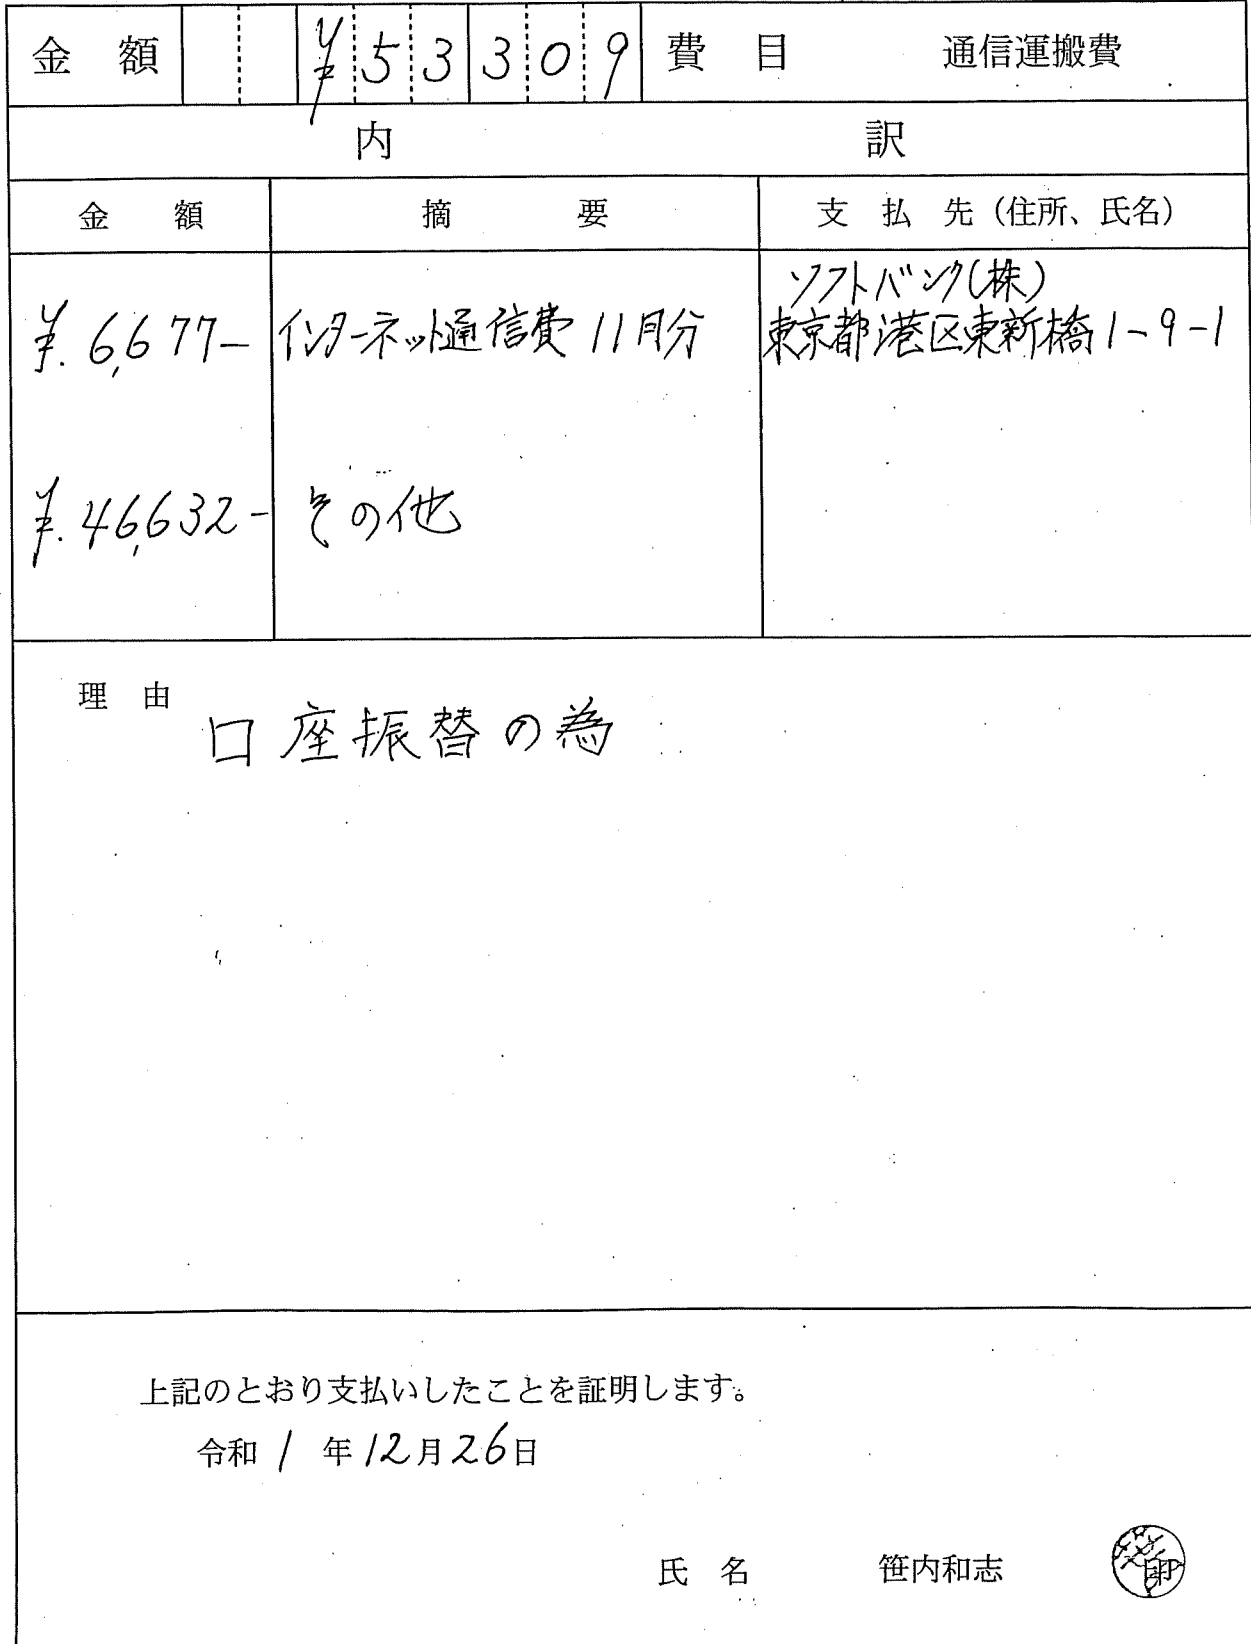 金額 ¥53309 費目 通信運搬費
内訳
金額 摘要 支払先（住所、氏名）
ソフトバンク(株)
¥.6,677- インターネット通信費 11月分 東京都港区東新橋1-9-1
¥.46,632- その他
理由
口座振替の為
上記のとおり支払いしたことを証明します。
令和 1 年 12月26日
氏名 笹内和志
印